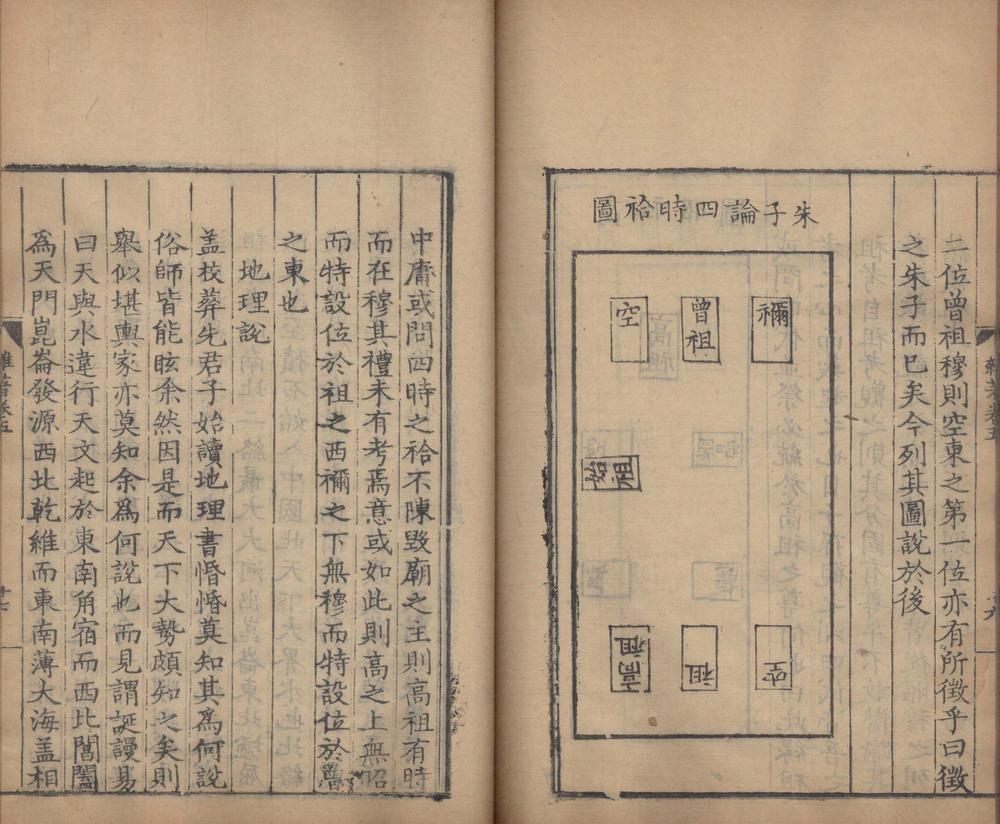 位曾祖穆則空東之第一位亦有所徵乎曰徵
之朱子而已矣今列其圖說於後
朱子論四時祫圖
禰
曾祖
空
始祖
空
祖
高祖
中庸或問四時之祫不陳毀廟之主則高祖有時
而在穆其禮未有考焉意或如此則高之上無昭
而特設位於祖之西禰之下無穆而特設位於曾
之東也
地理說
盖校葬先君子始讀地理書惛惛莫知其為何說
俗師皆能眩余然因是而天下大勢頗知之矣則
舉似堪輿家亦莫知余為何說也而見謂誕謾易
曰天與水違行天文起於東南角宿而西北闔闔
為天門崑崙發源西北乾維而東南薄大海盖相
雜著卷五
十七